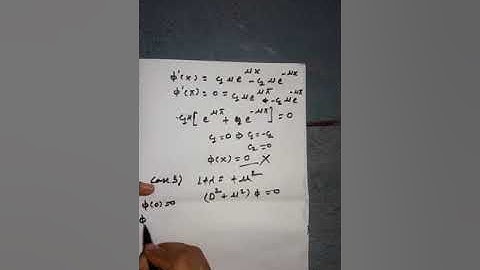 ϕ'(x) = c₁ μ e^{μx} - c₂ μ e^{-μx}
ϕ'(π) = 0 = c₁ μ e^{μπ} - c₂ μ e^{-μπ}
c₁μ [ e^{μπ} + e^{-μπ} ] = 0
c₁ = 0 ⇒ c₁ = -c₂
c₂ = 0
ϕ(x) = 0 X
Case 3) λ = +μ²
ϕ(0) = 0 (D² + μ²) ϕ = 0
ϕ